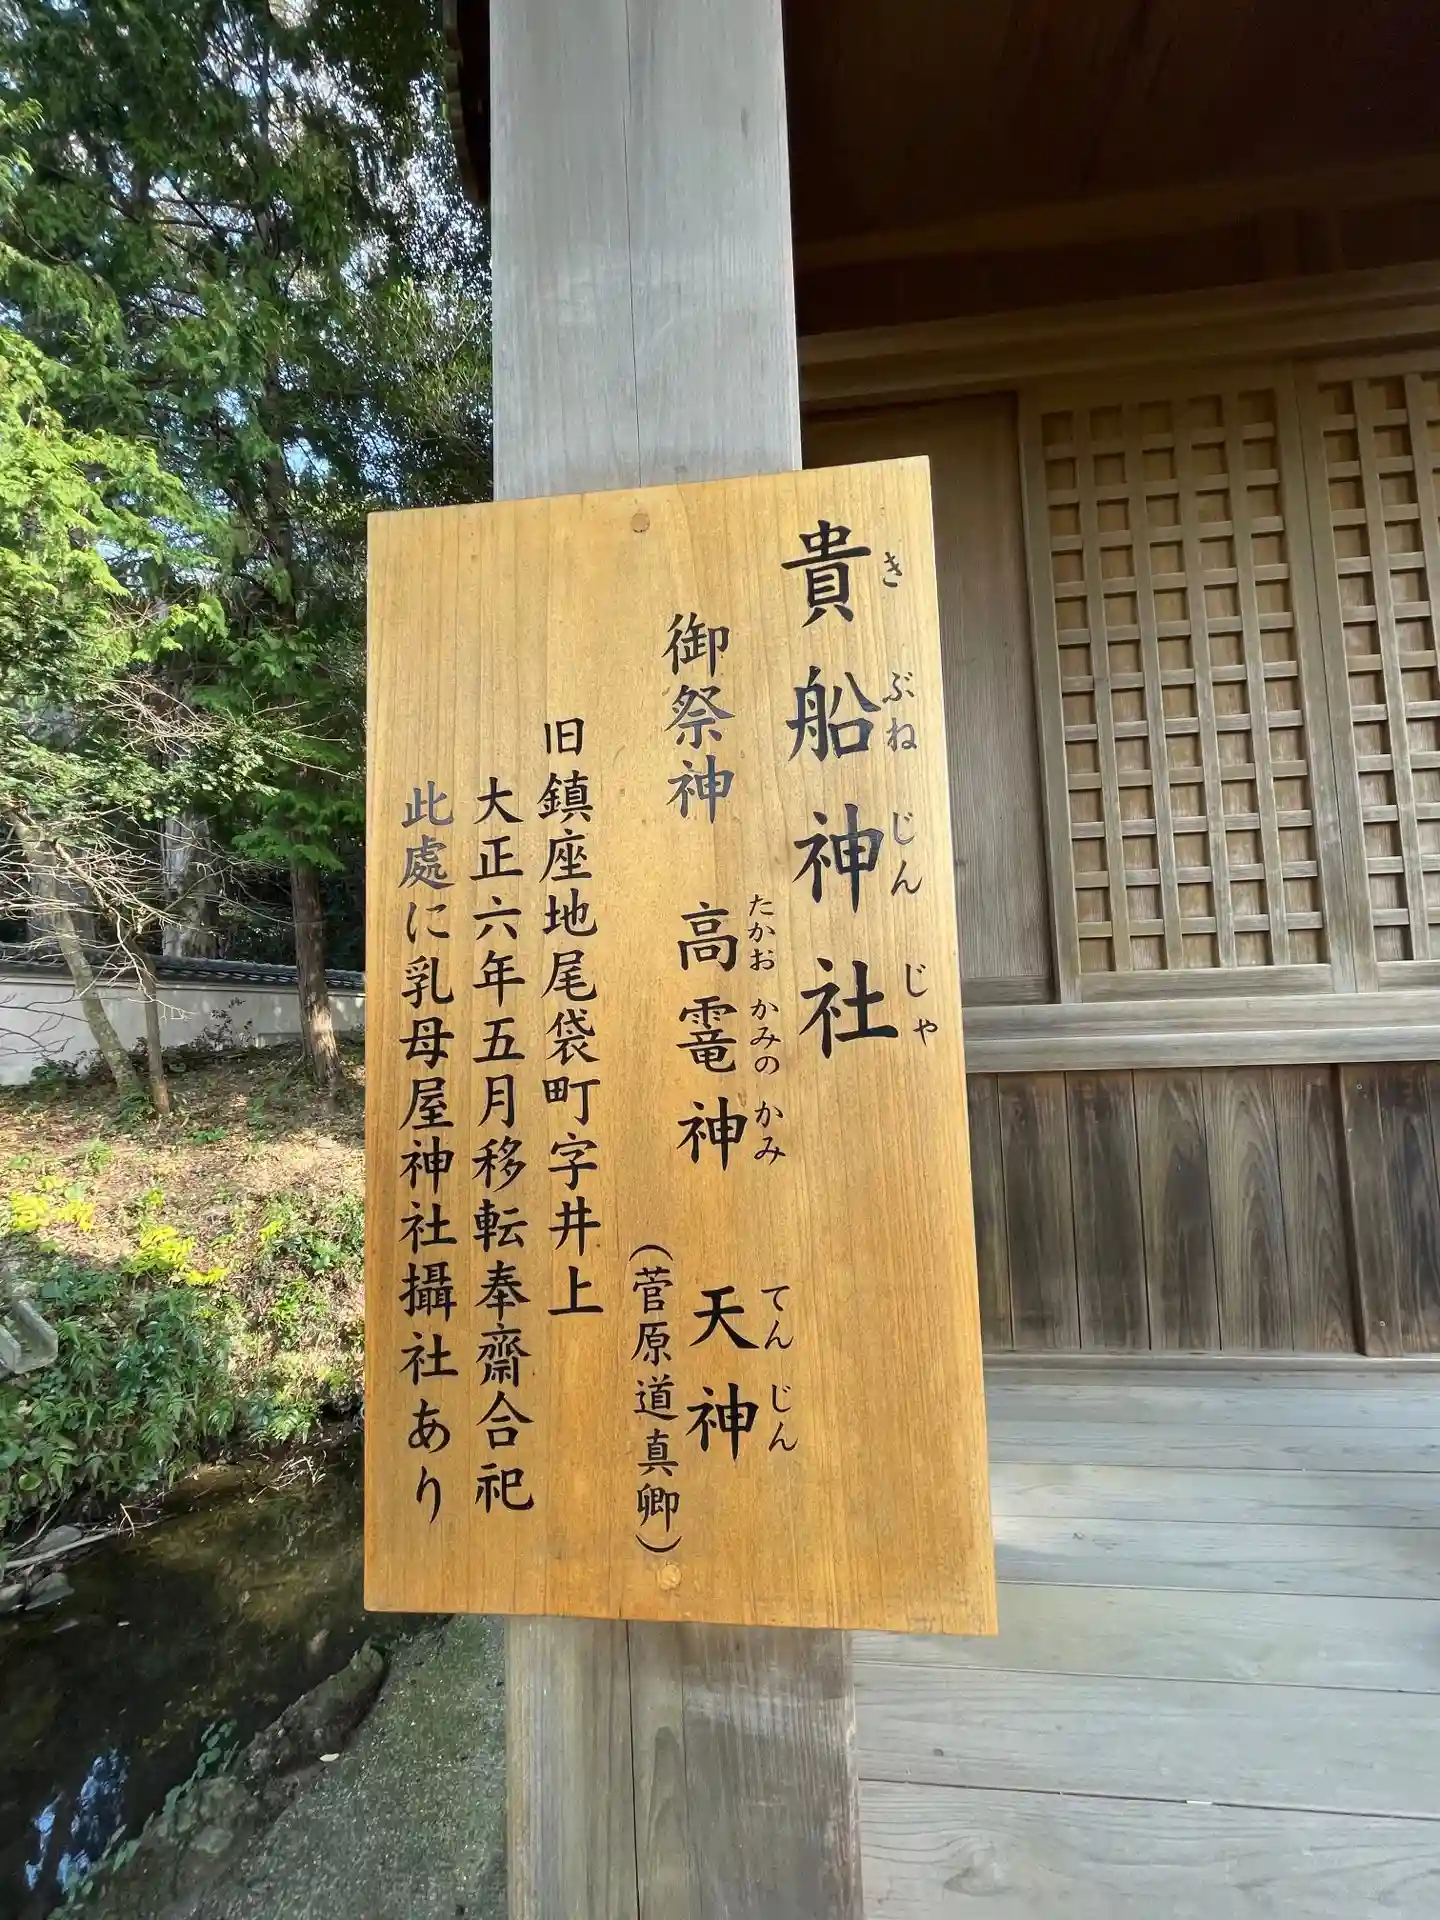 貴船神社
きぶねじんじゃ
御祭神 高龗神 天神
たかおかみのかみ てんじん
(菅原道真卿)
旧鎮座地尾袋町字井上
大正六年五月移転奉齋合祀
此處に乳母屋神社攝社あり